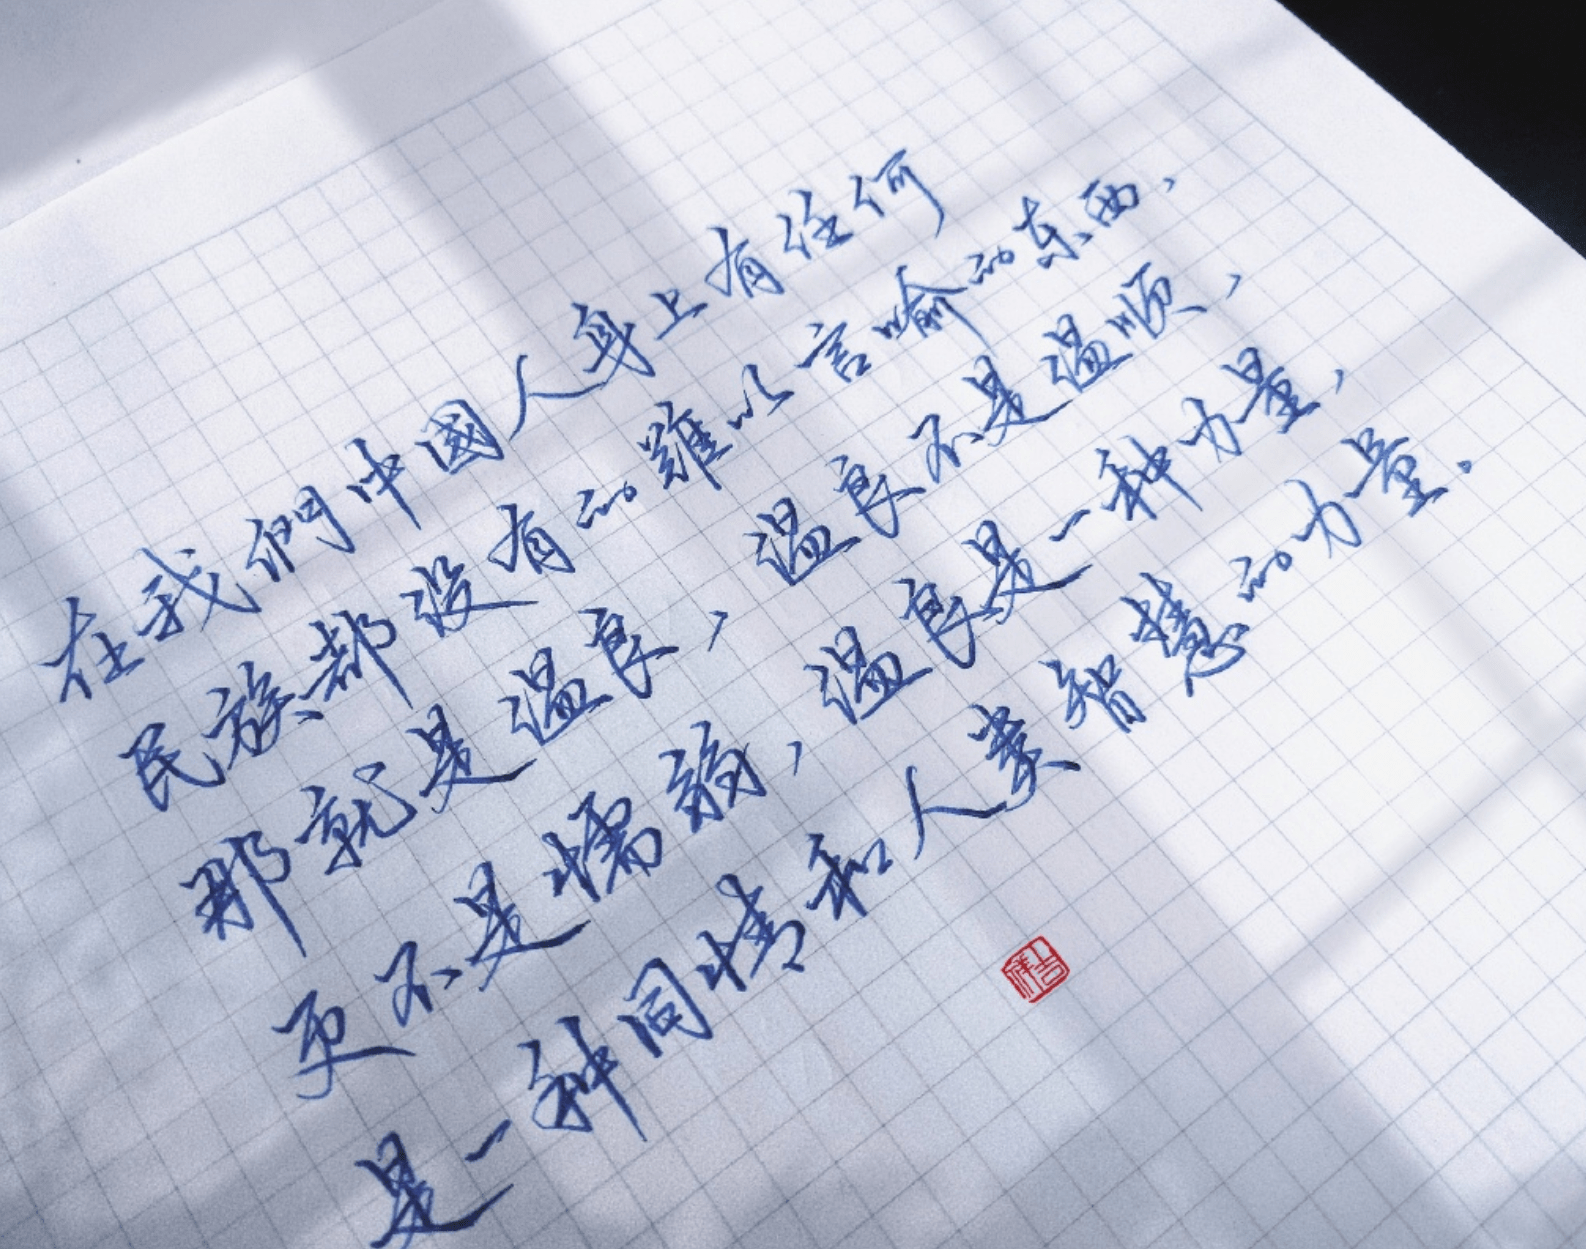 在我們中國人身上有任何
民族都没有的難以言喻的东西，
那就是温良，温良不是温顺，
更不是懦弱，温良是一种力量，
是一种同情和人类智慧的力量．